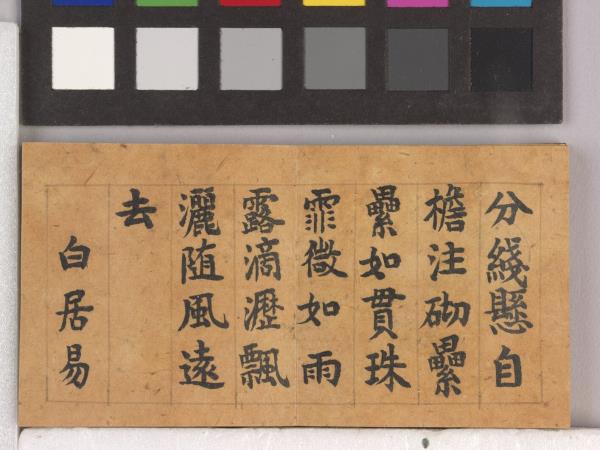 分綫懸自
檐注砌纍
纍如貫珠
霏微如雨
露滴瀝飄
灑随風遠
去
白居易